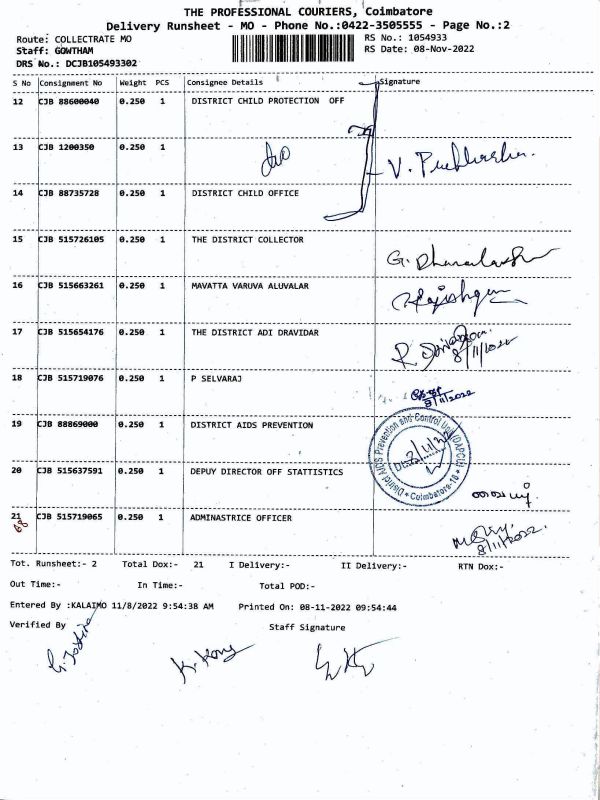 THE PROFESSIONAL COURIERS, Coimbatore
Delivery Runsheet - MO - Phone No.:0422-3505555 - Page No.:2
Route: COLLECTRATE MO RS No.: 1054933
Staff: GOWTHAM RS Date: 08-Nov-2022
DRS No.: DCJB105493302
S No Consignment No Weight PCS Consignee Details Signature
12 CJB 88600040 0.250 1 DISTRICT CHILD PROTECTION OFF
13 CJB 1200350 0.250 1
14 CJB 88735728 0.250 1 DISTRICT CHILD OFFICE
15 CJB 515726105 0.250 1 THE DISTRICT COLLECTOR
16 CJB 515663261 0.250 1 MAVATTA VARUVA ALUVALAR
17 CJB 515654176 0.250 1 THE DISTRICT ADI DRAVIDAR
8/11/2022
18 CJB 515719076 0.250 1 P SELVARAJ
8/11/2022
19 CJB 88869000 0.250 1 DISTRICT AIDS PREVENTION
District AIDS Prevention and Control Unit (DAPCU) Coimbatore-18
20 CJB 515637591 0.250 1 DEPUY DIRECTOR OFF STATTISTICS
21 CJB 515719065 0.250 1 ADMINASTRICE OFFICER
8/11/2022.
Tot. Runsheet:- 2 Total Dox:- 21 I Delivery:- II Delivery:- RTN Dox:-
Out Time:- In Time:- Total POD:-
Entered By :KALAIMO 11/8/2022 9:54:38 AM Printed On: 08-11-2022 09:54:44
Verified By Staff Signature